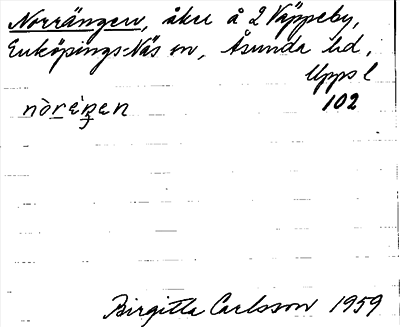 Norrängen, åker å 2 Väppeby,
Enköpings-Näs sn, Åsunda hd,
Upps l
102
Birgitta Carlsson 1959